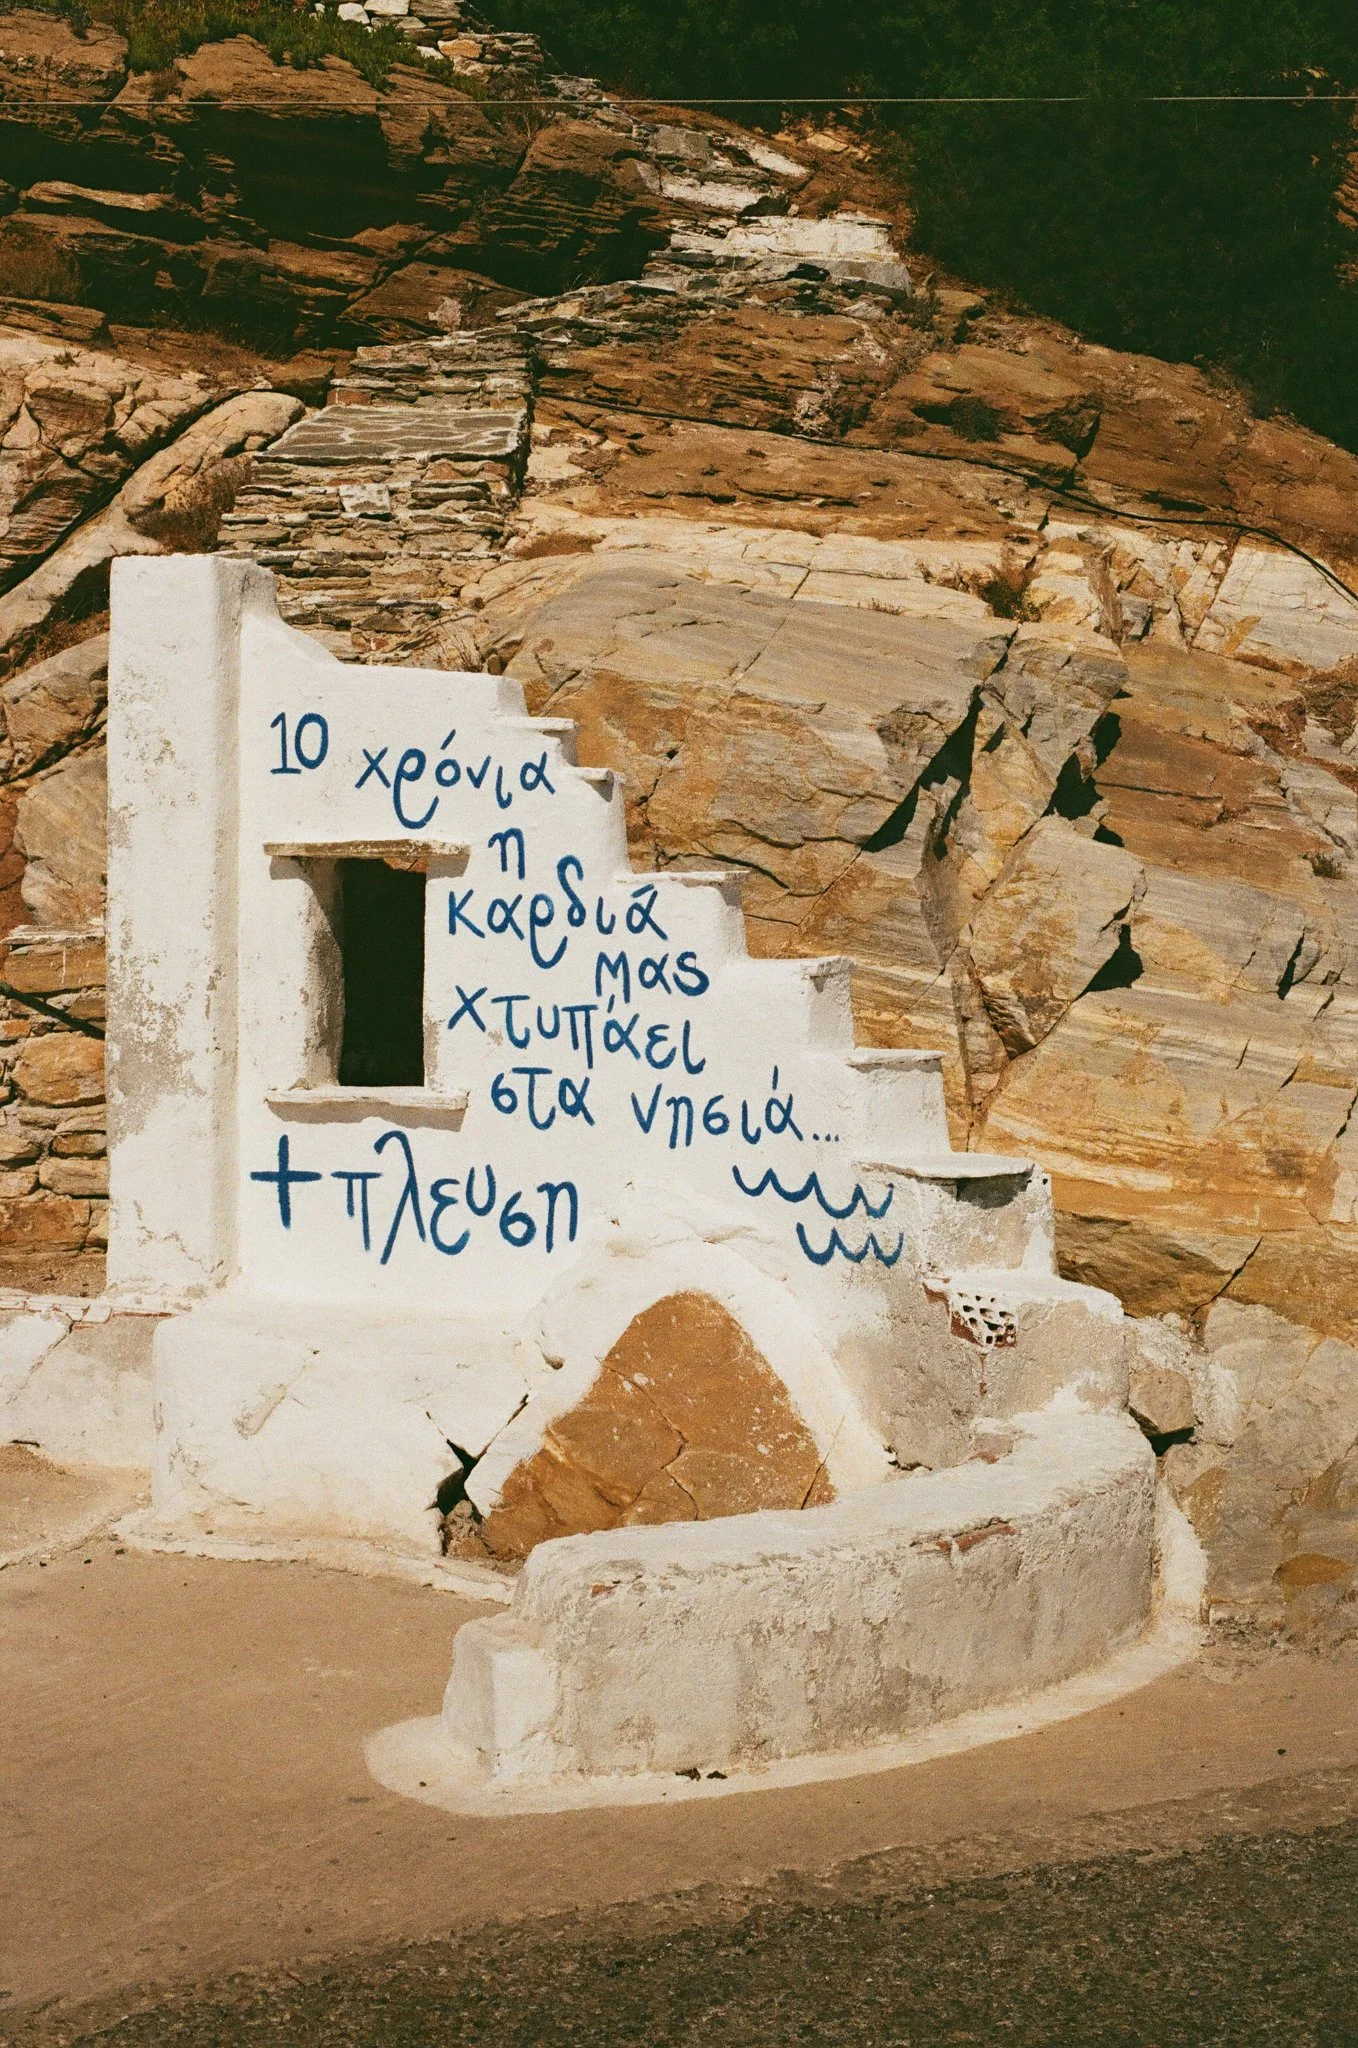 10 χρόνια
η
καρδιά
μας
χτυπάει
στα νησιά...
+πλευση